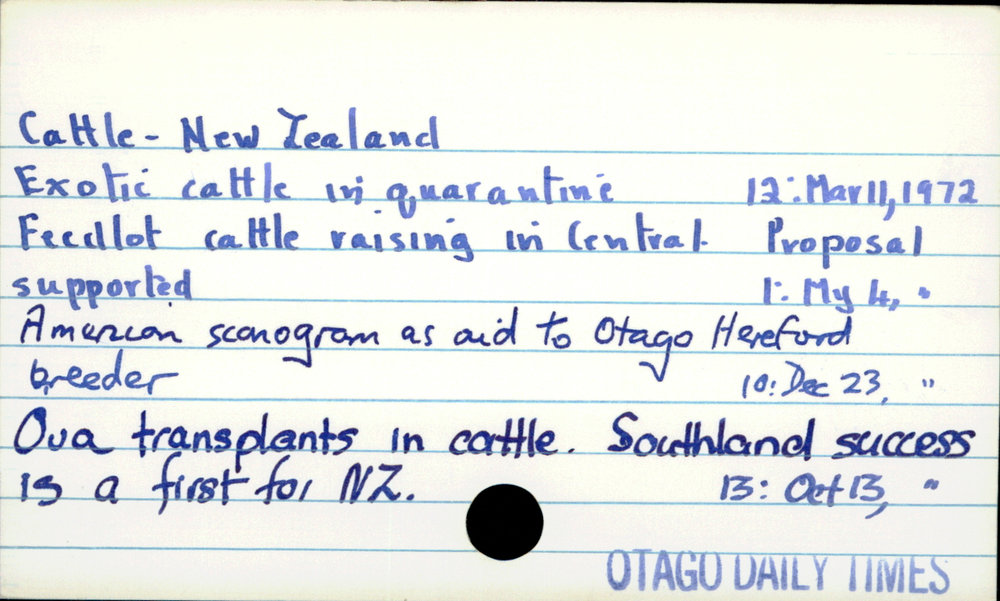 Cattle - New Zealand
Exotic cattle in quarantine 12: Mar 11, 1972
Feedlot cattle raising in Central. Proposal
supported 1: My 4, "
American scanogram as aid to Otago Hereford
breeder 10: Dec 23, "
Ova transplants in cattle. Southland success
is a first for NZ. 13: Oct 13, "
OTAGO DAILY TIMES